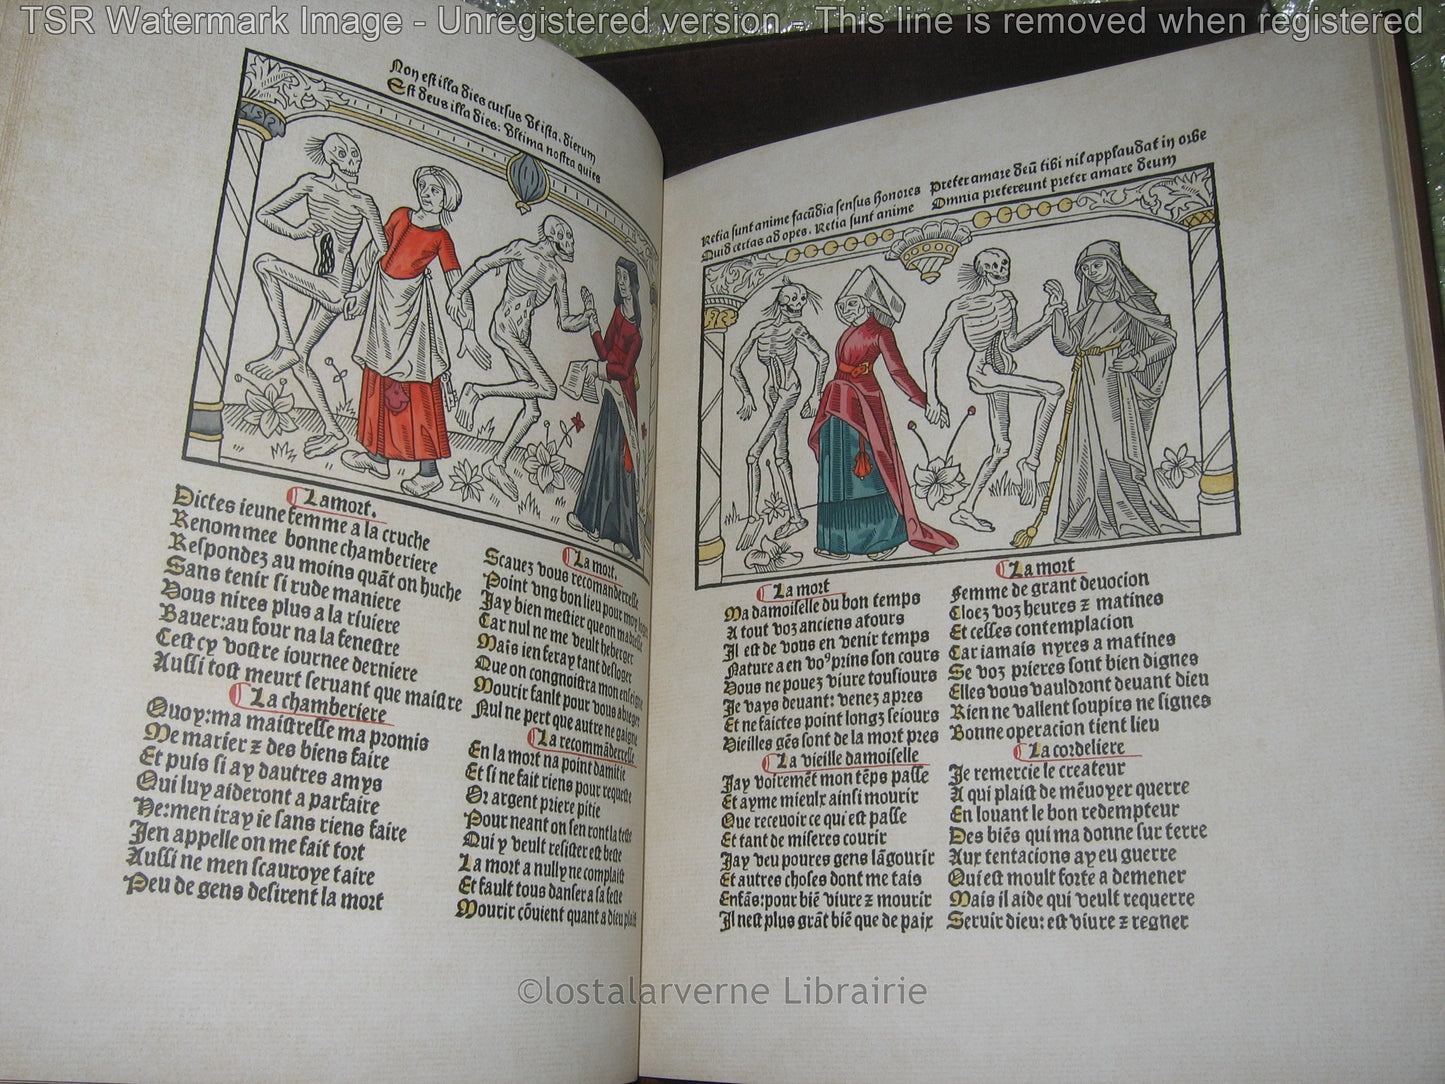 TSR Watermark Image - Unregistered version - This line is removed when registered
Non est illa dies cursus vt ista. dierum
Est deus illa dies: vltima nostra quies
La mort.
Dictes ieune femme a la cruche
Renommee bonne chamberiere
Respondez au moins quāt on huche
Sans tenir si rude maniere
Vous nires plus a la riuiere
Bauer: au four na la fenestre
Cest cy vostre iournee derniere
Aussi tost meurt seruant que maistre
La chamberiere
Quoy: ma maistresse ma promis
Me marier z des biens faire
Et puis si ay dautres amys
Qui luy aideront a parfaire
He: men iray ie sans riens faire
Jen appelle on me fait tort
Aussi ne men scauroye taire
Peu de gens desirent la mort
La mort.
Scauez vous recommanderesse
Point vng bon lieu pour moy loger
Jay bien mestier que on madresse
Car nul ne me veult heberger
Mais ien feray tant desloger
Que on congnoistra mon enseigne
Mourir fault pour vous abreger
Nul ne pert que autre ne gaigne
La recommāderesse
En la mort na point damitie
Et si ne fait riens pour requeste
Or argent priere pitie
Pour neant on sen ront la teste
Qui y veult resister est beste
La mort a nully ne complaist
Et fault tous danser a sa feste
Mourir cōuient quant a dieu plaist
Retia sunt anime facūdia sensus honores
Quid certas ad opes. Retia sunt anime
Preter amare deū tibi nil applaudat in orbe
Omnia pretereunt preter amare deum
La mort
Ma damoiselle du bon temps
A tout voz anciens atours
Il est de vous en venir temps
Nature a en vo⁹ prins son cours
Vous ne pouez viure tousiours
Je vays deuant: venez apres
Et ne faictes point longz seiours
Vieilles gēs sont de la mort pres
La vieille damoiselle
Jay voiremēt mon tēps passe
Et ayme mieulx ainsi mourir
Que receuoir ce qui est passe
Et tant de miseres courir
Jay veu poures gens lāgourir
Et autres choses dont me tais
Enfās: pour biē viure z mourir
Il nest plus grāt biē que de paix
La mort
Femme de grant deuocion
Cloez voz heures z matines
Et cesses contemplacion
Car iamais nyres a matines
Se voz prieres sont bien dignes
Elles vous vauldront deuant dieu
Rien ne vallent soupirs ne signes
Bonne operacion tient lieu
La cordeliere
Je remercie le createur
A qui plaist de mēuoyer querre
En louant le bon redempteur
Des biēs qui ma donne sur terre
Aux tentacions ay eu guerre
Qui est moult forte a demener
Mais il aide qui veult requerre
Seruir dieu: est viure z regner
©lostalarverne Librairie